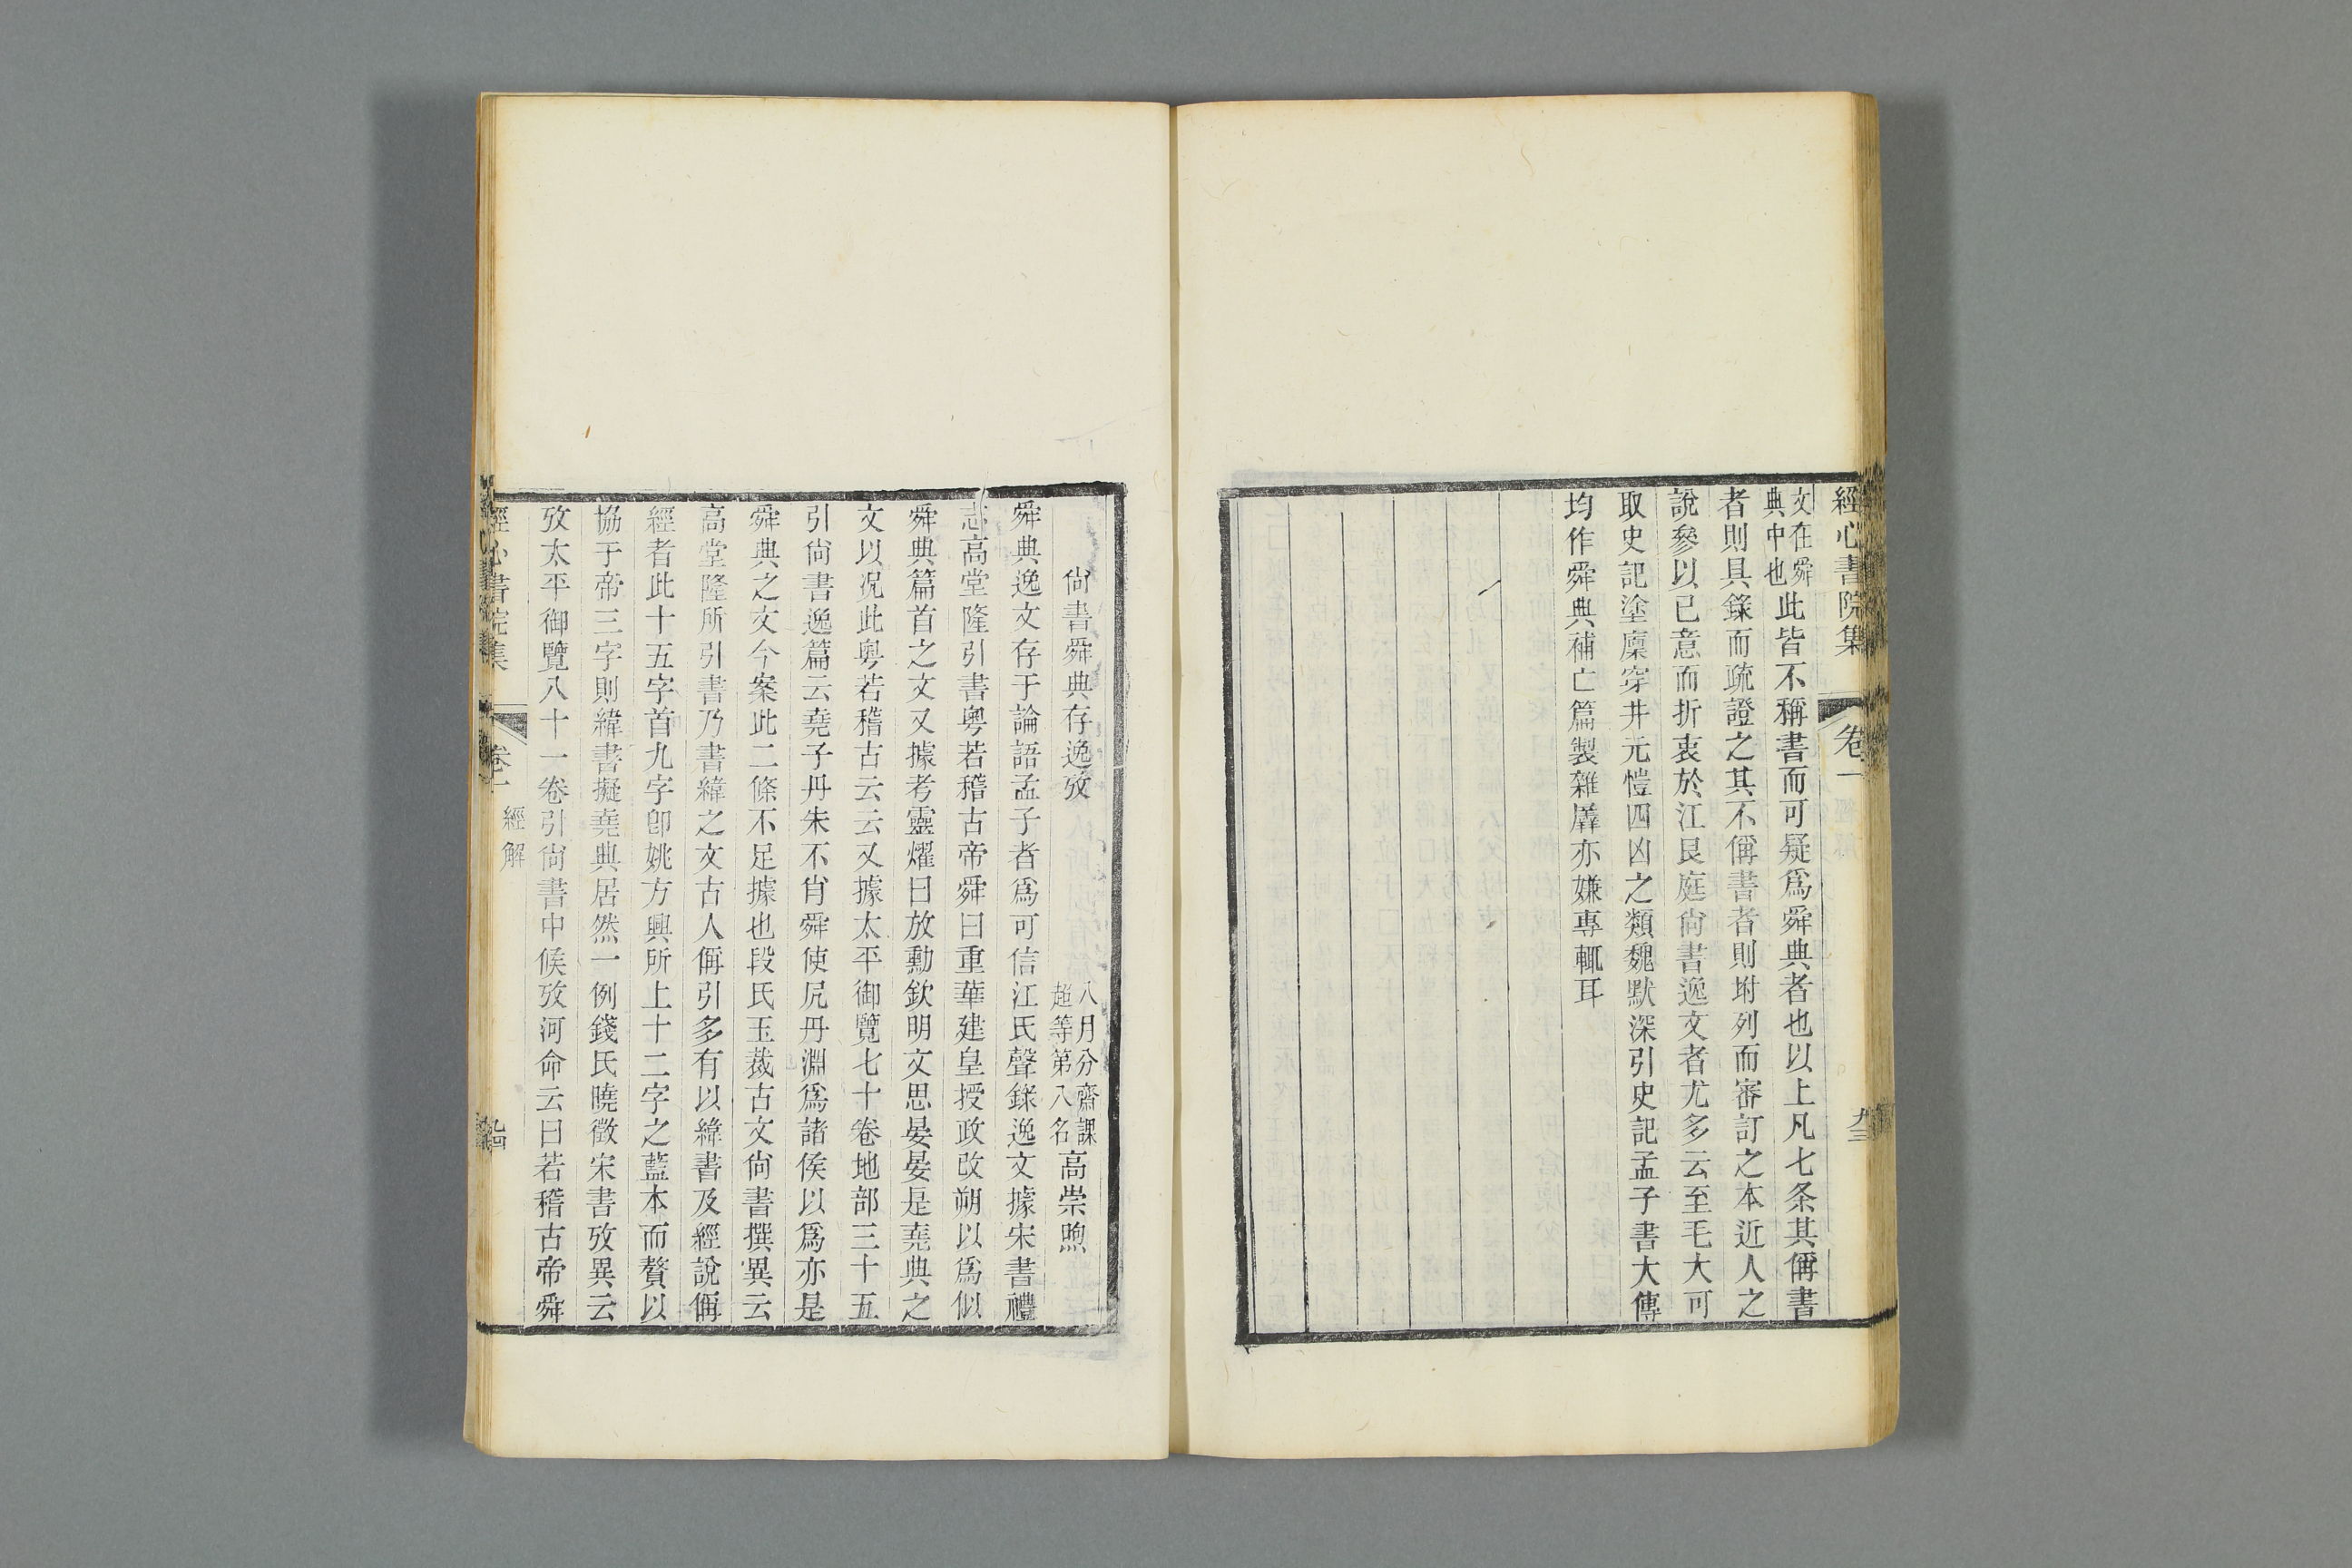 經心書院集
卷一
九三
文在舜
典中也
此皆不稱書而可疑爲舜典者也以上凡七条其偁書
者則具錄而疏證之其不偁書者則坿列而審訂之本近人之
說參以已意而折衷於江艮庭尙書逸文者尤多云至毛大可
取史記塗廩穿井元愷四凶之類魏默深引史記孟子書大傳
均作舜典補亡篇製雜羼亦嫌專輒耳
尙書舜典存逸攷
八月分齋課
超等第八名
高崇煦
舜典逸文存于論語孟子者爲可信江氏聲錄逸文據宋書禮
志高堂隆引書粤若稽古帝舜曰重華建皇授政改朔以爲似
舜典篇首之文又據考靈燿曰放勳欽明文思晏晏是堯典之
文以况此粤若稽古云云又據太平御覽七十卷地部三十五
引尙書逸篇云堯子丹朱不肖舜使凥丹淵爲諸侯以爲亦是
舜典之文今案此二條不足據也段氏玉裁古文尙書撰異云
高堂隆所引書乃書緯之文古人偁引多有以緯書及經說偁
經者此十五字首九字卽姚方興所上十二字之藍本而贅以
協于帝三字則緯書擬堯典居然一例錢氏曉徵宋書攷異云
攷太平御覽八十一卷引尙書中候攷河命云曰若稽古帝舜
經心書院集
卷一
經解
九四